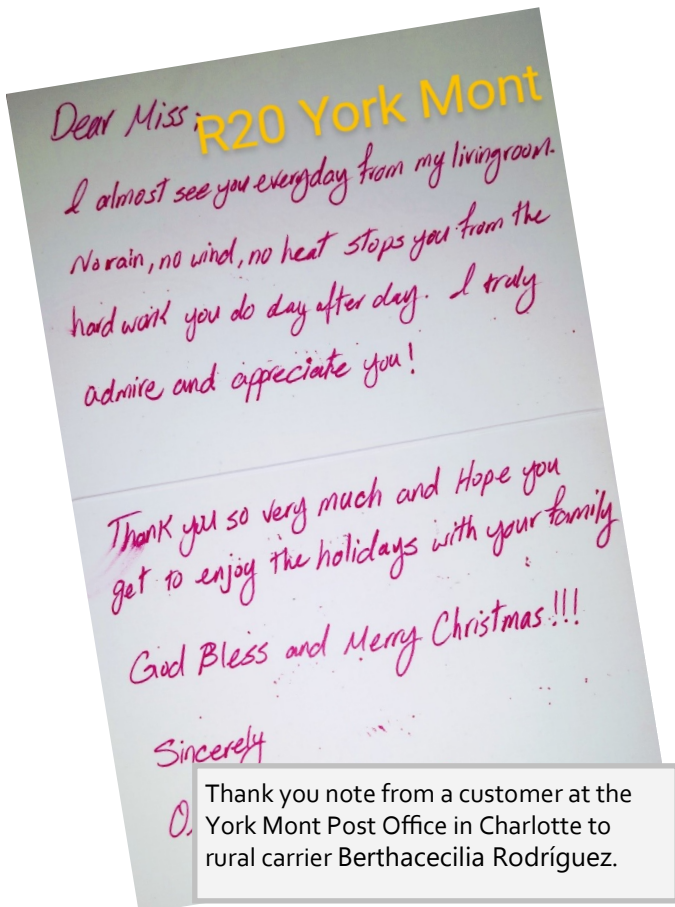 Dear Miss;
R20 York Mont
I almost see you everyday from my livingroom.
No rain, no wind, no heat stops you from the
hard work you do day after day. I truly
admire and appreciate you!
Thank you so very much and Hope you
get to enjoy the holidays with your family
God Bless and Merry Christmas!!!
Sincerely
O
Thank you note from a customer at the
York Mont Post Office in Charlotte to
rural carrier Berthacecilia Rodríguez.